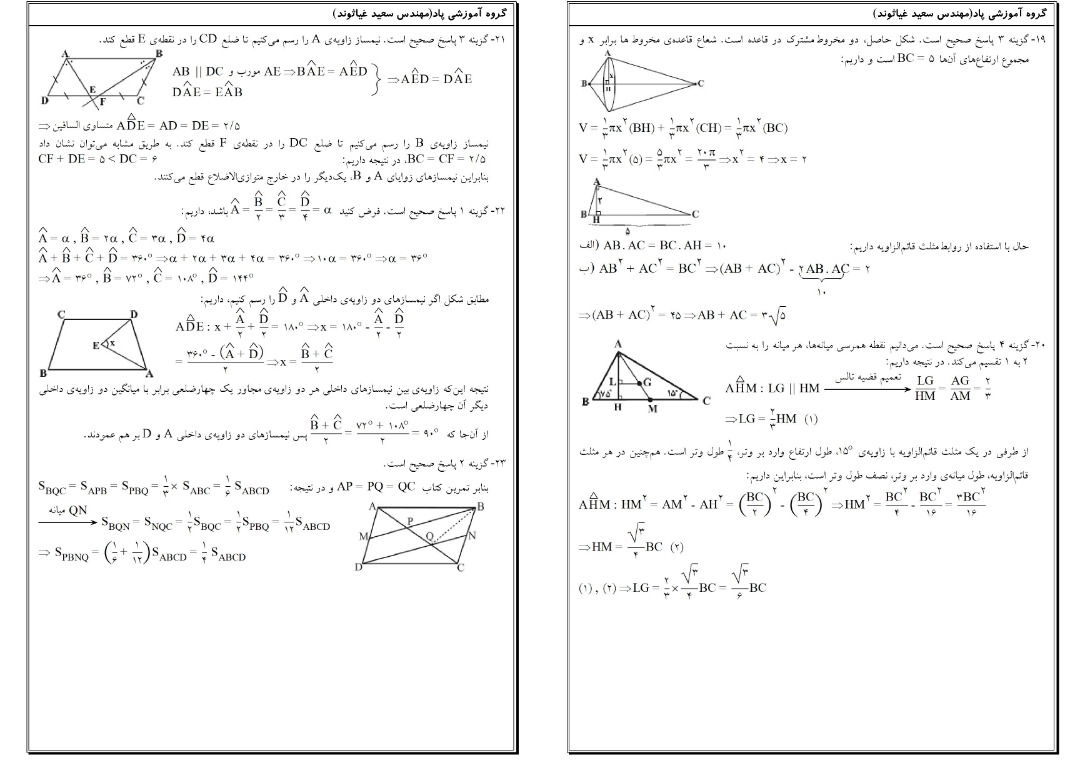 گروه آموزشی پاد(مهندس سعید غیاثوند)
۱۹- گزینه ۳ پاسخ صحیح است. شکل حاصل، دو مخروط مشترک در قاعده است. شعاع قاعده‌ی مخروط ها برابر x و
مجموع ارتفاع‌های آن‌ها BC = ۵ است و داریم:
A
B C
x
H
V = ۱/۳ πx²(BH) + ۱/۳ πx²(CH) = ۱/۳ πx²(BC)
V = ۱/۳ πx²(۵) = ۵/۳ πx² = ۲۰π/۳ ⇒ x² = ۴ ⇒ x = ۲
A
۲
B H C
۵
حال با استفاده از روابط مثلث قائم‌الزاویه داریم:
الف) AB . AC = BC . AH = ۱۰
ب) AB² + AC² = BC² ⇒ (AB + AC)² - ۲ AB . AC = ۲
۱۰
⇒ (AB + AC)² = ۴۵ ⇒ AB + AC = ۳√۵
۲۰- گزینه ۴ پاسخ صحیح است. می‌دانیم نقطه همرسی میانه‌ها، هر میانه را به نسبت
۲ به ۱ تقسیم می‌کند. در نتیجه داریم:
A
L G
B ۷۵° ۱۵° C
H M
AHM : LG || HM تعمیم قضیه تالس → LG/HM = AG/AM = ۲/۳
⇒ LG = ۲/۳ HM (۱)
از طرفی در یک مثلث قائم‌الزاویه با زاویه‌ی ۱۵°، طول ارتفاع وارد بر وتر، ۱/۴ طول وتر است. هم‌چنین در هر مثلث
قائم‌الزاویه، طول میانه‌ی وارد بر وتر، نصف طول وتر است، بنابراین داریم:
AHM : HM² = AM² - AH² = (BC/۲)² - (BC/۴)² ⇒ HM² = BC²/۴ - BC²/۱۶ = ۳BC²/۱۶
⇒ HM = √۳/۴ BC (۲)
(۱) , (۲) ⇒ LG = ۲/۳ × √۳/۴ BC = √۳/۶ BC
گروه آموزشی پاد(مهندس سعید غیاثوند)
۲۱- گزینه ۳ پاسخ صحیح است. نیمساز زاویه‌ی A را رسم می‌کنیم تا ضلع CD را در نقطه‌ی E قطع کند.
A B
D E F C
AB || DC و مورب AE ⇒ BÂE = AÊD
DÂE = EÂB
⇒ AÊD = DÂE
⇒ متساوی الساقین ADE = AD = DE = ۲/۵
نیمساز زاویه‌ی B را رسم می‌کنیم تا ضلع DC را در نقطه‌ی F قطع کند. به طریق مشابه می‌توان نشان داد
BC = CF = ۲/۵، در نتیجه داریم: CF + DE = ۵ < DC = ۶
بنابراین نیمسازهای زوایای A و B، یک‌دیگر را در خارج متوازی‌الاضلاع قطع می‌کنند.
۲۲- گزینه ۱ پاسخ صحیح است. فرض کنید Â = B̂/۲ = Ĉ/۳ = D̂/۴ = α باشد، داریم:
Â = α , B̂ = ۲α , Ĉ = ۳α , D̂ = ۴α
Â + B̂ + Ĉ + D̂ = ۳۶۰° ⇒ α + ۲α + ۳α + ۴α = ۳۶۰° ⇒ ۱۰α = ۳۶۰° ⇒ α = ۳۶°
⇒ Â = ۳۶° , B̂ = ۷۲° , Ĉ = ۱۰۸° , D̂ = ۱۴۴°
مطابق شکل اگر نیمسازهای دو زاویه‌ی داخلی Â و D̂ را رسم کنیم، داریم:
C D
E x
B A
ADE : x + Â/۲ + D̂/۲ = ۱۸۰° ⇒ x = ۱۸۰° - Â/۲ - D̂/۲
= ۳۶۰° - (Â + D̂)/۲ ⇒ x = B̂ + Ĉ/۲
نتیجه این‌که زاویه‌ی بین نیمسازهای داخلی هر دو زاویه‌ی مجاور یک چهارضلعی برابر با میانگین دو زاویه‌ی داخلی
دیگر آن چهارضلعی است.
از آن‌جا که B̂ + Ĉ/۲ = ۷۲° + ۱۰۸°/۲ = ۹۰° پس نیمسازهای دو زاویه‌ی داخلی A و D بر هم عمودند.
۲۳- گزینه ۲ پاسخ صحیح است.
بنابر تمرین کتاب AP = PQ = QC و در نتیجه: S_BQC = S_APB = S_PBQ = ۱/۳ × S_ABC = ۱/۶ S_ABCD
میانه QN → S_BQN = S_NQC = ۱/۲ S_BQC = ۱/۲ S_PBQ = ۱/۱۲ S_ABCD
⇒ S_PBNQ = (۱/۶ + ۱/۱۲) S_ABCD = ۱/۴ S_ABCD
A B
P
M Q N
D C